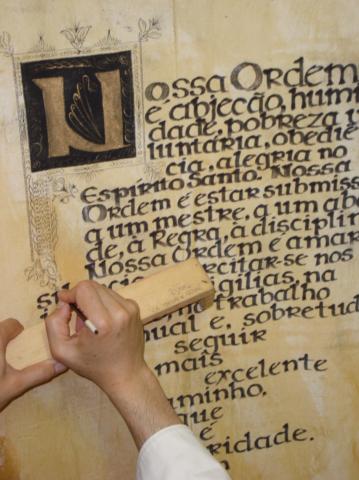 Nossa Ordem
é abjecção, humi
dade, pobreza v
luntária, obediê
cia, alegria no
Espírito Santo. Nossa
Ordem é estar submiss
a um mestre, a um aba
de, à Regra, à disciplin
Nossa Ordem é amar
nos
vigílias, na
trabalho
ual e, sobretud
seguir
mais
excelente
aminho.
que
é
ridade.